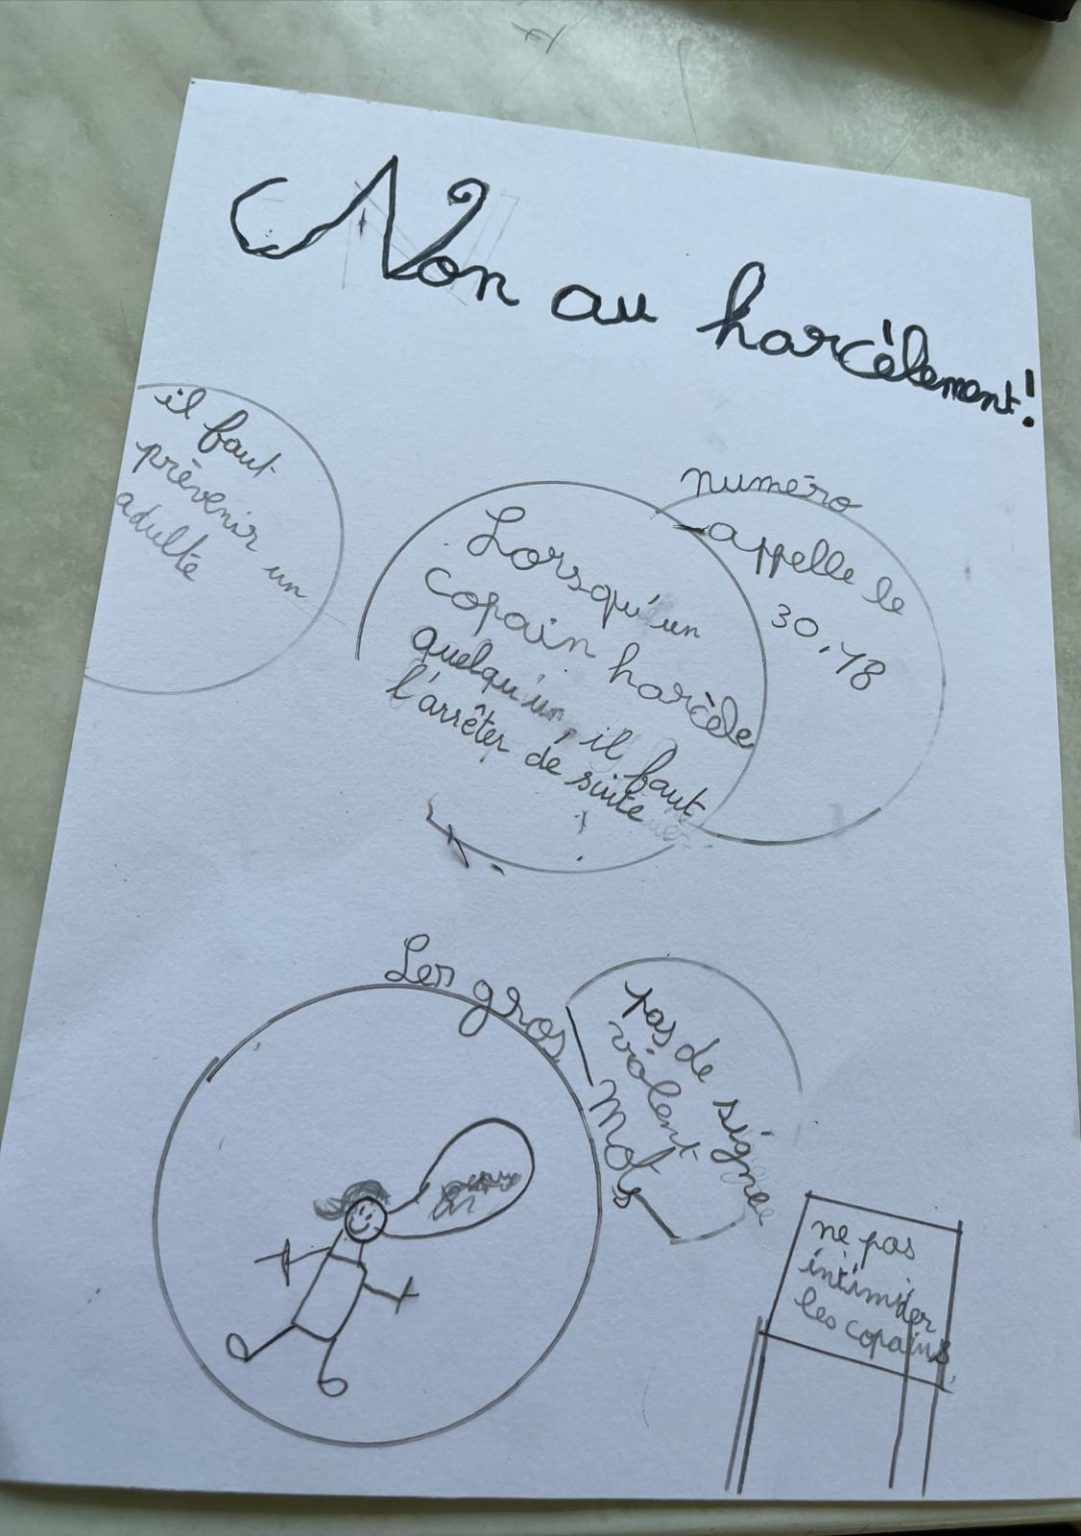 Non au harcèlement!
il faut
prévenir un
adulte
Lorsqu'un
copain harcèle
quelqu'un, il faut
l'arrêter de suite
numéro
appelle le
30.18
Les gros
Mots
pas de
violent
signe
ne pas
intimider
les copains